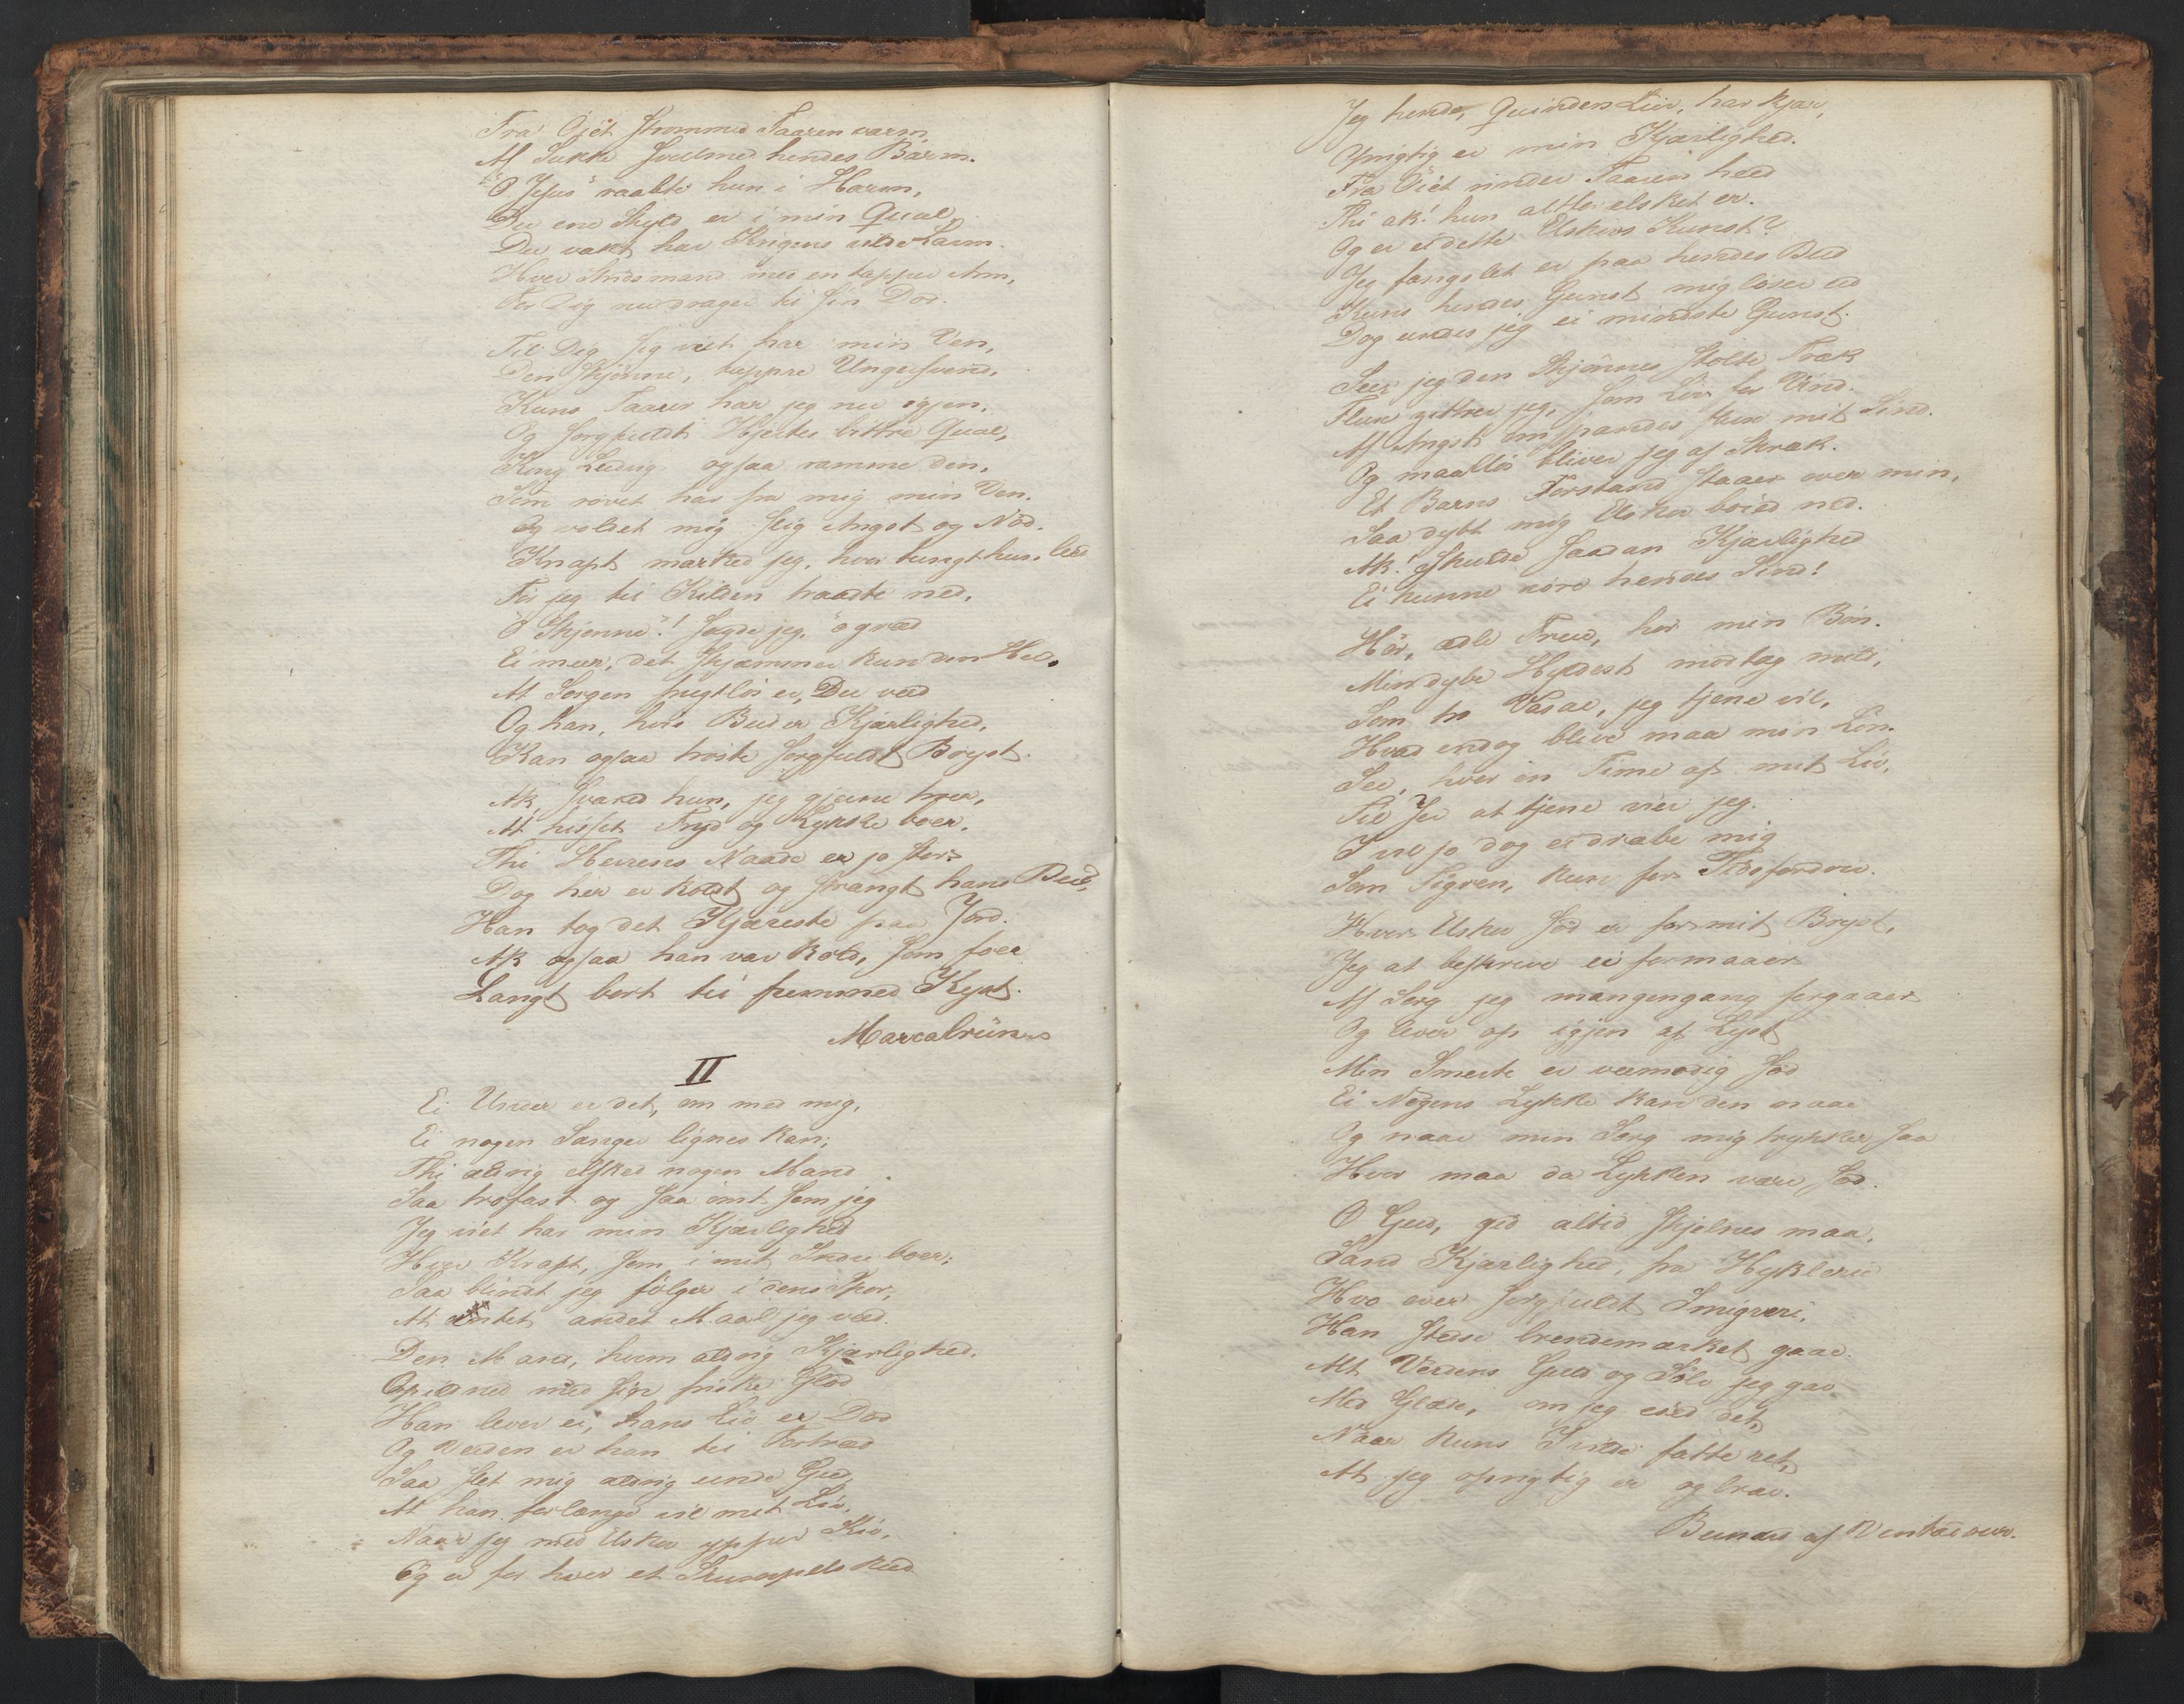 Fra Öiet strömmed Taaren varm,
Af Sukke svulmed hendes Barm.
"O Jesus" raabte hun i Harm,
Du ene Skyld er i min Qual,
Du vakt har Krigens vilde Larm.
Hver Stridsmand med en tapper Arm,
For Dig nu drager til sin Död.
Til Dig sig viet har min Ven,
Den skjönne, tappre Ungersvend,
Kuns Taarer har jeg nu igjen,
Og sorgfuldt Hjertes bittre Qual,
Kong Ludvig ogsaa ramme den,
Som rövet har fra mig min Ven.
Og voldet mig slig Angst og Nöd.
Knapt mærked jeg, hvor tungt hun leed
För jeg til Kilden traadte ned,
"O Skjönne"! sagde jeg, "o græd
Ei meer, det skjæmmer kun den Hud.
At Sorgen frugtlös er, Du veed
Og han, hvis Bud er Kjærlighed,
Kan ogsaa tröste sorgfuldt Bryst.
Ak, svared hun, jeg gjerne troer,
At hisset Fryd og Lykke boer,
Thi Herrens Naade er jo stor:
Dog her er koldt og strængt hans Bud,
Han tog det Kjæreste paa Jord.
Ak ogsaa han var kold, som foer
Langt bort til fremmed Kyst.
Marcabrün
II
Ei Under er det, om med mig,
Ei nogen Sanger lignes kan;
Thi aldrig elsked nogen Mand
Saa trofast og saa ömt som jeg
Jeg viet har min Kjærlighed
Hver Kraft, som i mit Indre boer;
Saa blindt jeg fölger i dens Spor,
At intet andet Maal jeg veed.
Den Mand, hvem aldrig Kjærlighed,
Opildned med sin friske Glöd
Han lever ei, hans Liv er Död
Og Verden er han til Fortræd
Saa slet mig aldrig unde Gud,
At han forlænge vil mit Liv,
Naar jeg med Elskov ypper Kiv,
Og er for hver et Skumpelskud
Jeg hende, Quinders Liv, har kjær,
Oprigtig er min Kjærlighed.
Fra Öiet rinder Taaren heed
Thi ak! hun altfor elsket er.
Og er ei dette Elskovs Kunst?
Jeg fængslet er paa hendes Bud
Kuns hendes Gunst mig löser ud
Dog undes jeg ei mindste Gunst.
Seer jeg den Skjönnes stolte Træk
Flux zittrer jeg, som Löv for Vind.
Af Angst omspændes flux mit Sind.
Og maallös bliver jeg af Skræk.
Et Barns Forstand staaer over min,
Saa dybt mig Elskov böied ned.
Ak! skulde saadan Kjærlighed
Ei kunne röre hendes Sind!
Hör, ædle Frue, hör min Bön.
Min dybe Hyldest modtag mild,
Som tro Vasal, jeg tjene vil,
Hvad endog blive maa min Lön.
See, hver en Time af mit Liv,
Til Jer at tjene vier jeg.
I vil jo dog ei dræbe mig
Som Tigren, kun for Tidsfordriv.
Hvor Elskov söd er for mit Bryst,
Jeg at beskrive ei formaaer
Af Sorg jeg mangengang forgaaer
Og lever op igjen af Lyst
Min Smerte er veemodig söd
Ei Nogens Lykke kan den naae
Og naar min Sorg mig trykker saa
Hvor maa da Lykken være söd.
O Gud, gid altid skjelnes maa,
Sand Kjærlighed, fra Hyklerie
Hvo over sorgfuldt Smigreri,
Han stedse brændemærket gaae.
Alt Verdens Guld og Sölv jeg gav
Med Glæde, om jeg eied det,
Naar kuns I vilde fatte ret,
At jeg oprigtig er og brav.
Bernard af Ventadour.